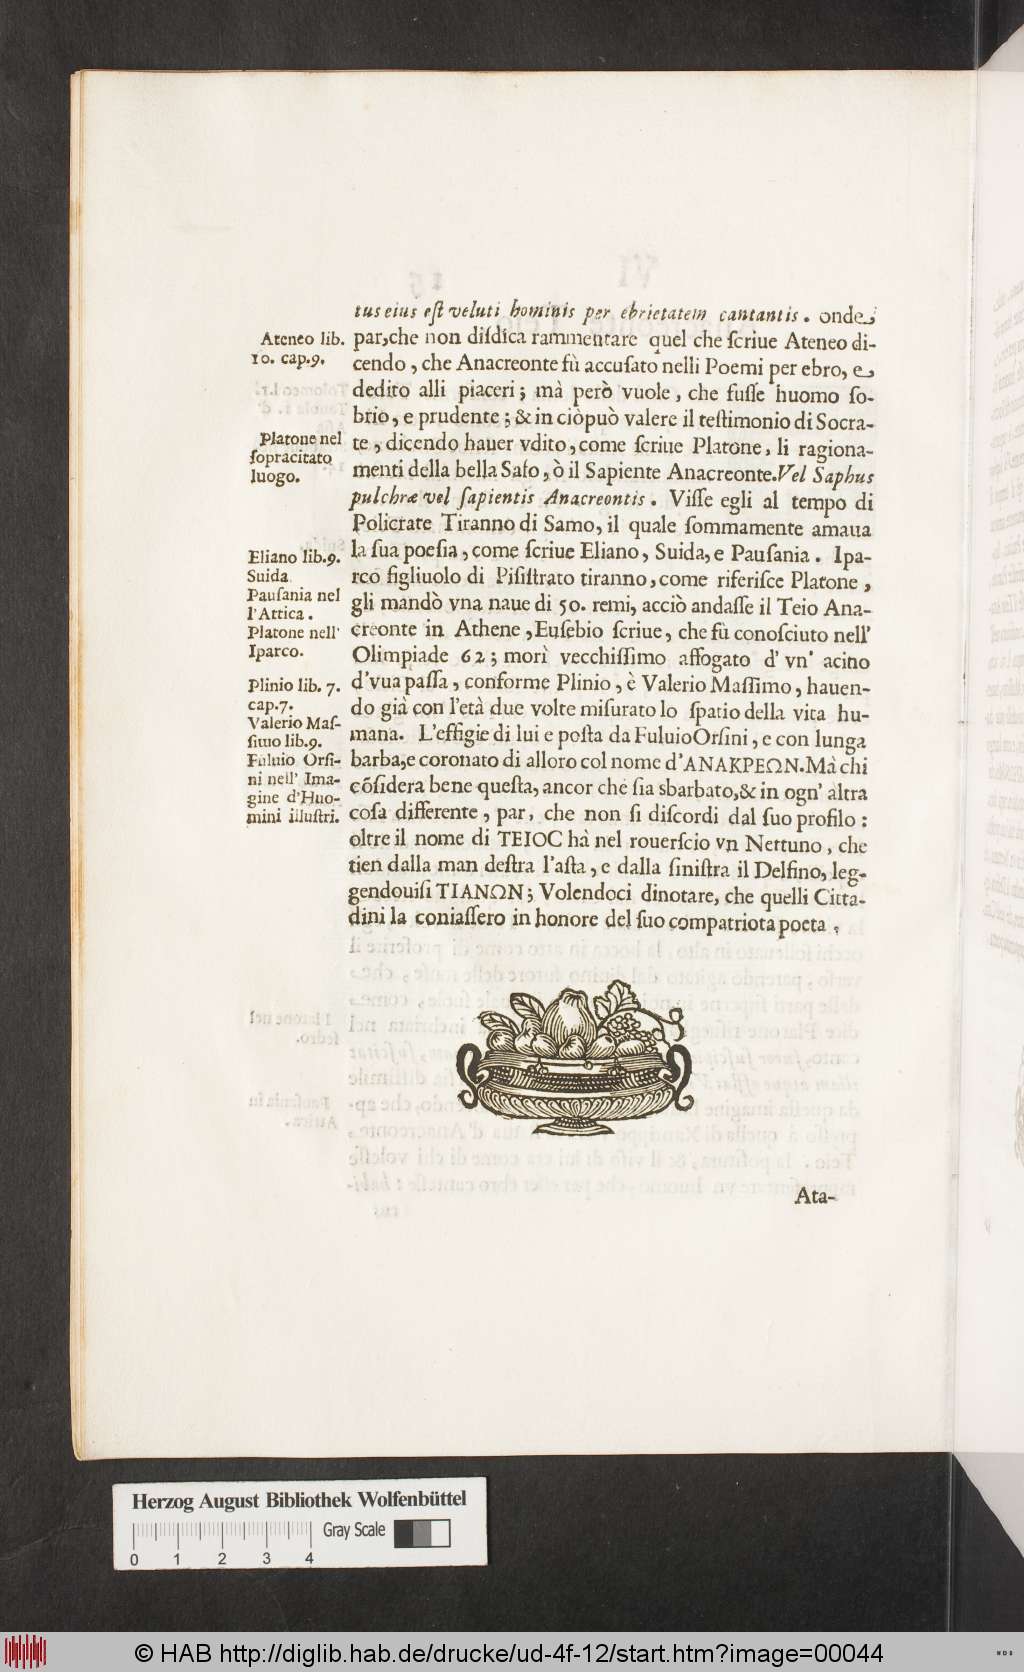 tus eius eſt veluti hominis per ebrietatem cantantis. onde
par,che non diſdica rammentare quel che ſcriue Ateneo di-
cendo, che Anacreonte fù accuſato nelli Poemi per ebro, e
dedito alli piaceri; mà però vuole, che fuſſe huomo ſo-
brio, e prudente; & in ciòpuò valere il teſtimonio di Socra-
te, dicendo hauer vdito, come ſcriue Platone, li ragiona-
menti della bella Safo, ò il Sapiente Anacreonte.Vel Saphus
pulchræ vel ſapientis Anacreontis. Viſſe egli al tempo di
Policrate Tiranno di Samo, il quale ſommamente amaua
la ſua poeſia, come ſcriue Eliano, Suida, e Pauſania. Ipa-
rco figliuolo di Piſiſtrato tiranno, come riferiſce Platone,
gli mandò vna naue di 50. remi, acciò andaſſe il Teio Ana-
creonte in Athene, Euſebio ſcriue, che fù conoſciuto nell'
Olimpiade 62; morì vecchiſſimo affogato d' vn' acino
d'vua paſſa, conforme Plinio, è Valerio Maſſimo, hauen-
do già con l'età due volte miſurato lo ſpatio della vita hu-
mana. L'effigie di lui e poſta da FuluioOrſini, e con lunga
barba,e coronato di alloro col nome d'ΑΝΑΚΡΕΩΝ.Mà chi
cõſidera bene queſta, ancor che ſia sbarbato,& in ogn' altra
coſa differente, par, che non ſi diſcordi dal ſuo profilo:
oltre il nome di ΤΕΙΟC hà nel rouerſcio vn Nettuno, che
tien dalla man deſtra l'aſta, e dalla ſiniſtra il Delfino, leg-
gendouiſi ΤΙΑΝΩΝ; Volendoci dinotare, che quelli Citta-
dini la coniaſſero in honore del ſuo compatriota poeta.
Ateneo lib.
10. cap.9.
Platone nel
ſopracitato
luogo.
Eliano lib.9.
Suida
Pauſania nel
l'Attica.
Platone nell'
Iparco.
Plinio lib. 7.
cap.7.
Valerio Maſ-
ſimo lib.9.
Fuluio Orſi-
ni nell' Ima-
gine d'Huo-
mini illuſtri.
Ata-
Herzog August Bibliothek Wolfenbüttel
Gray Scale
0 1 2 3 4
© HAB http://diglib.hab.de/drucke/ud-4f-12/start.htm?image=00044